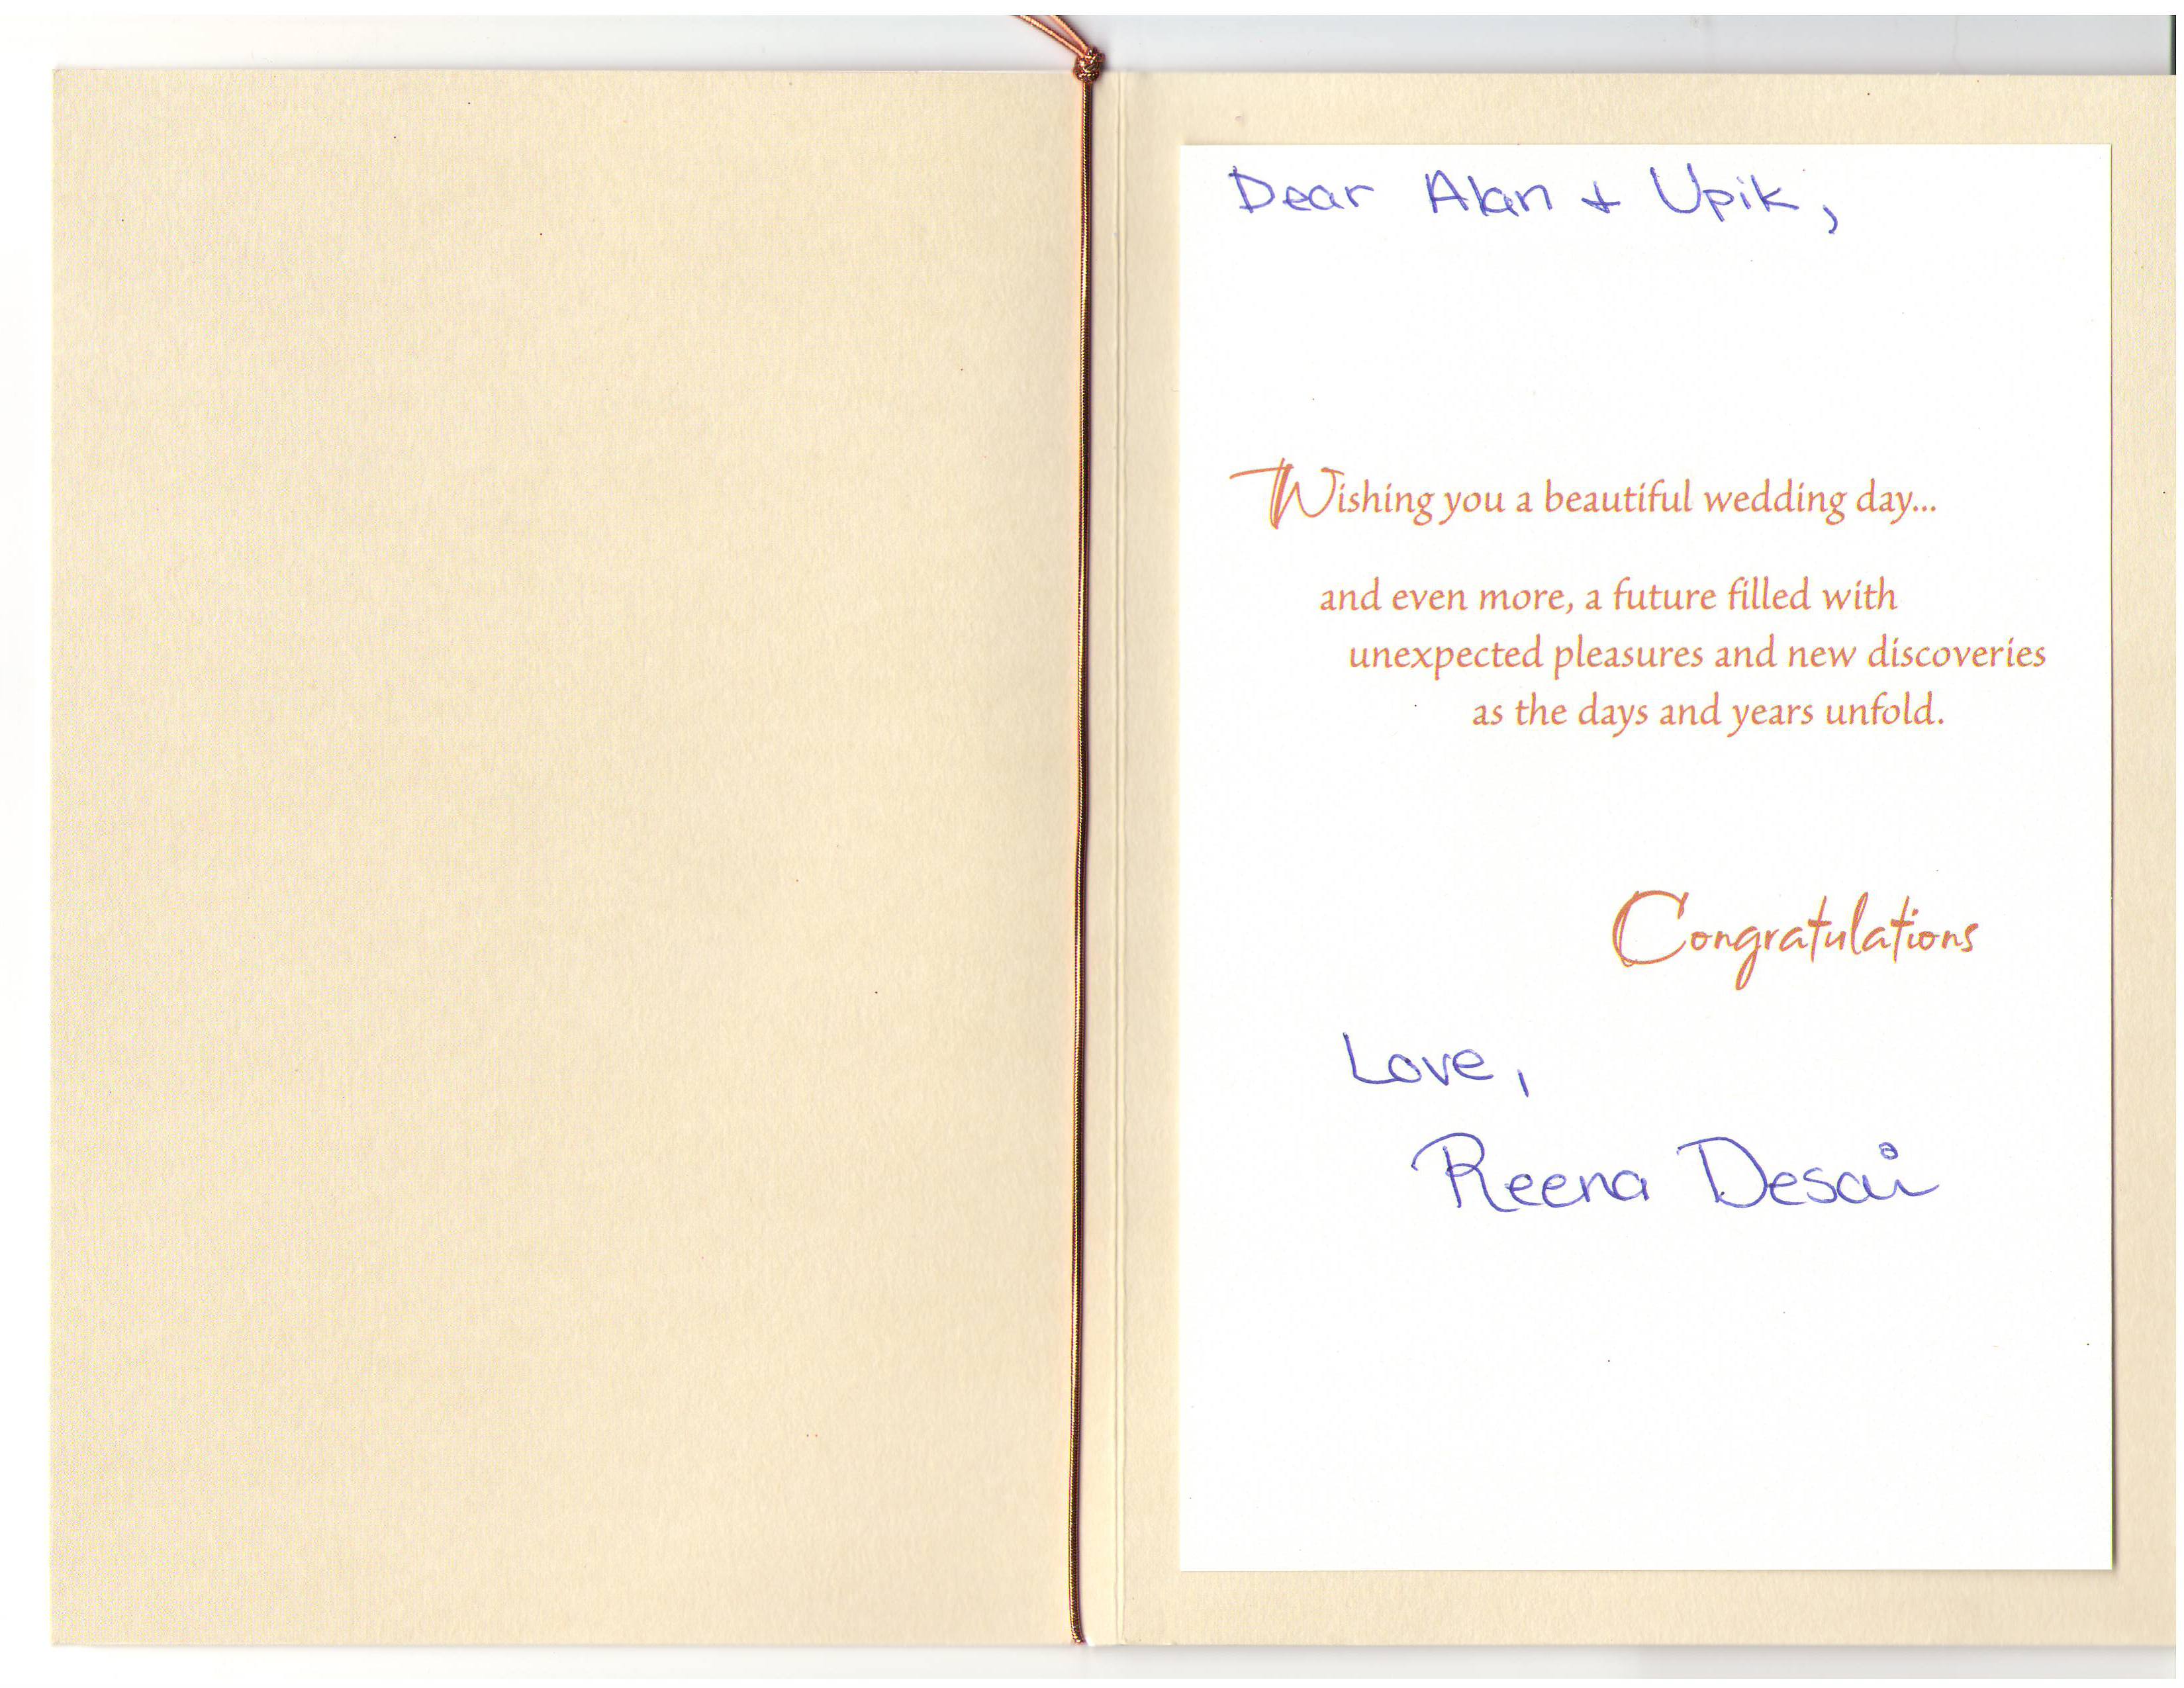 Dear Alan + Upik,
Wishing you a beautiful wedding day...
and even more, a future filled with
unexpected pleasures and new discoveries
as the days and years unfold.
Congratulations
Love,
Reena Desai